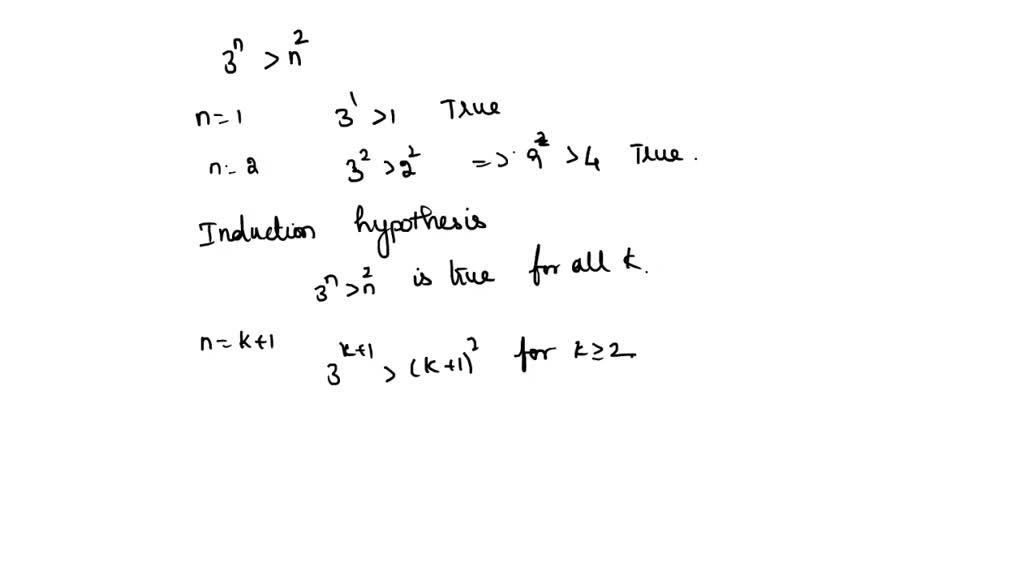 3^n > n^2
n=1 3^1 >1 True
n=2 3^2 >2^2 => 9^2 >4 True.
Induction hypothesis
3^n >n^2 is true for all k.
n=k+1 3^k+1 > (k+1)^2 for k≥2